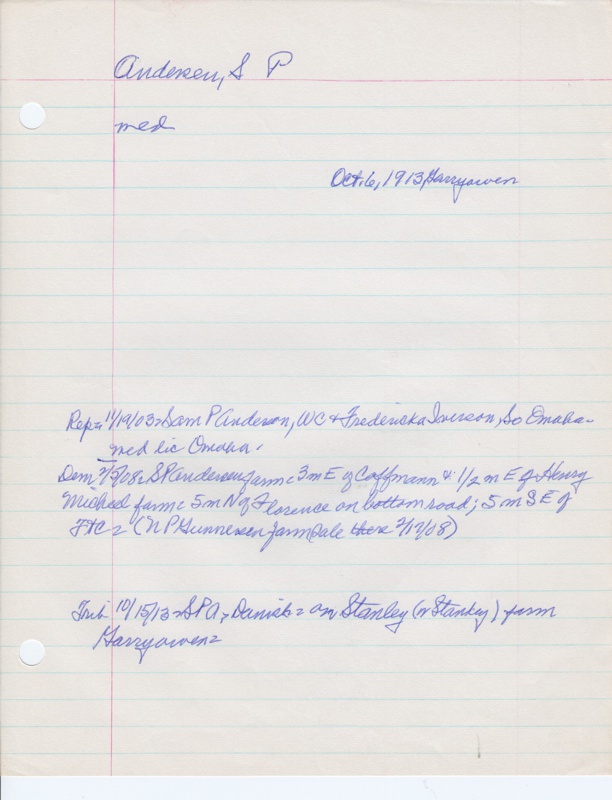 Andersen, S P
med
Oct. 6, 1913, Garryowen
Rep= 11/19/03= Sam P Anderson, WC & Fredericka Iverson, So Omaha-
med lic Omaha.
Dem 2/5/08= SP Andersen farm= 3 m E of Coffmann & 1/2 m E of Henry
Michael farm= 5 m N of Florence on bottom road; 5 m SE of
FtC= (N P Gunnersen farm sale there 2/12/08)
Trib 10/15/13= S P A, Danish= on Stanley (or Stankey) farm
Garryowen=